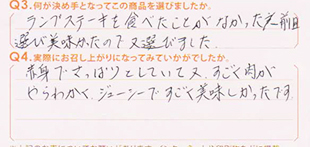 Q3.何が決め手となってこの商品を選びましたか。
ランプステーキを食べたことがなかった。前回
選び美味かたので又選びました。
Q4.実際にお召し上がりになってみていかがでしたか。
赤身でさっぱりとしていて又、すごく肉が
やわらかく、ジューシーですごく美味しかったです。